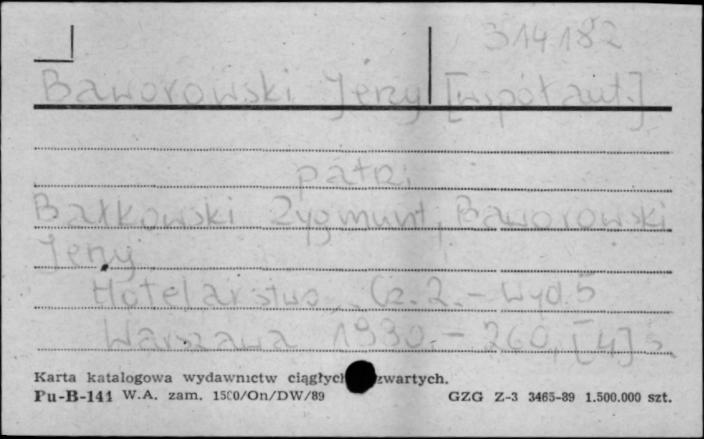 314182
Baworowski Jerzy [współaut.]
patrz
Bałkowski Zygmunt, Baworowski
Jerzy
Hotelarstwo. Cz. 2. - Wyd. 5
Warszawa 1990. - 260, [4] s.
Karta katalogowa wydawnictw ciągłych zwartych.
Pu-B-141 W.A. zam. 1500/On/DW/89 GZG Z-3 3465-89 1.500.000 szt.